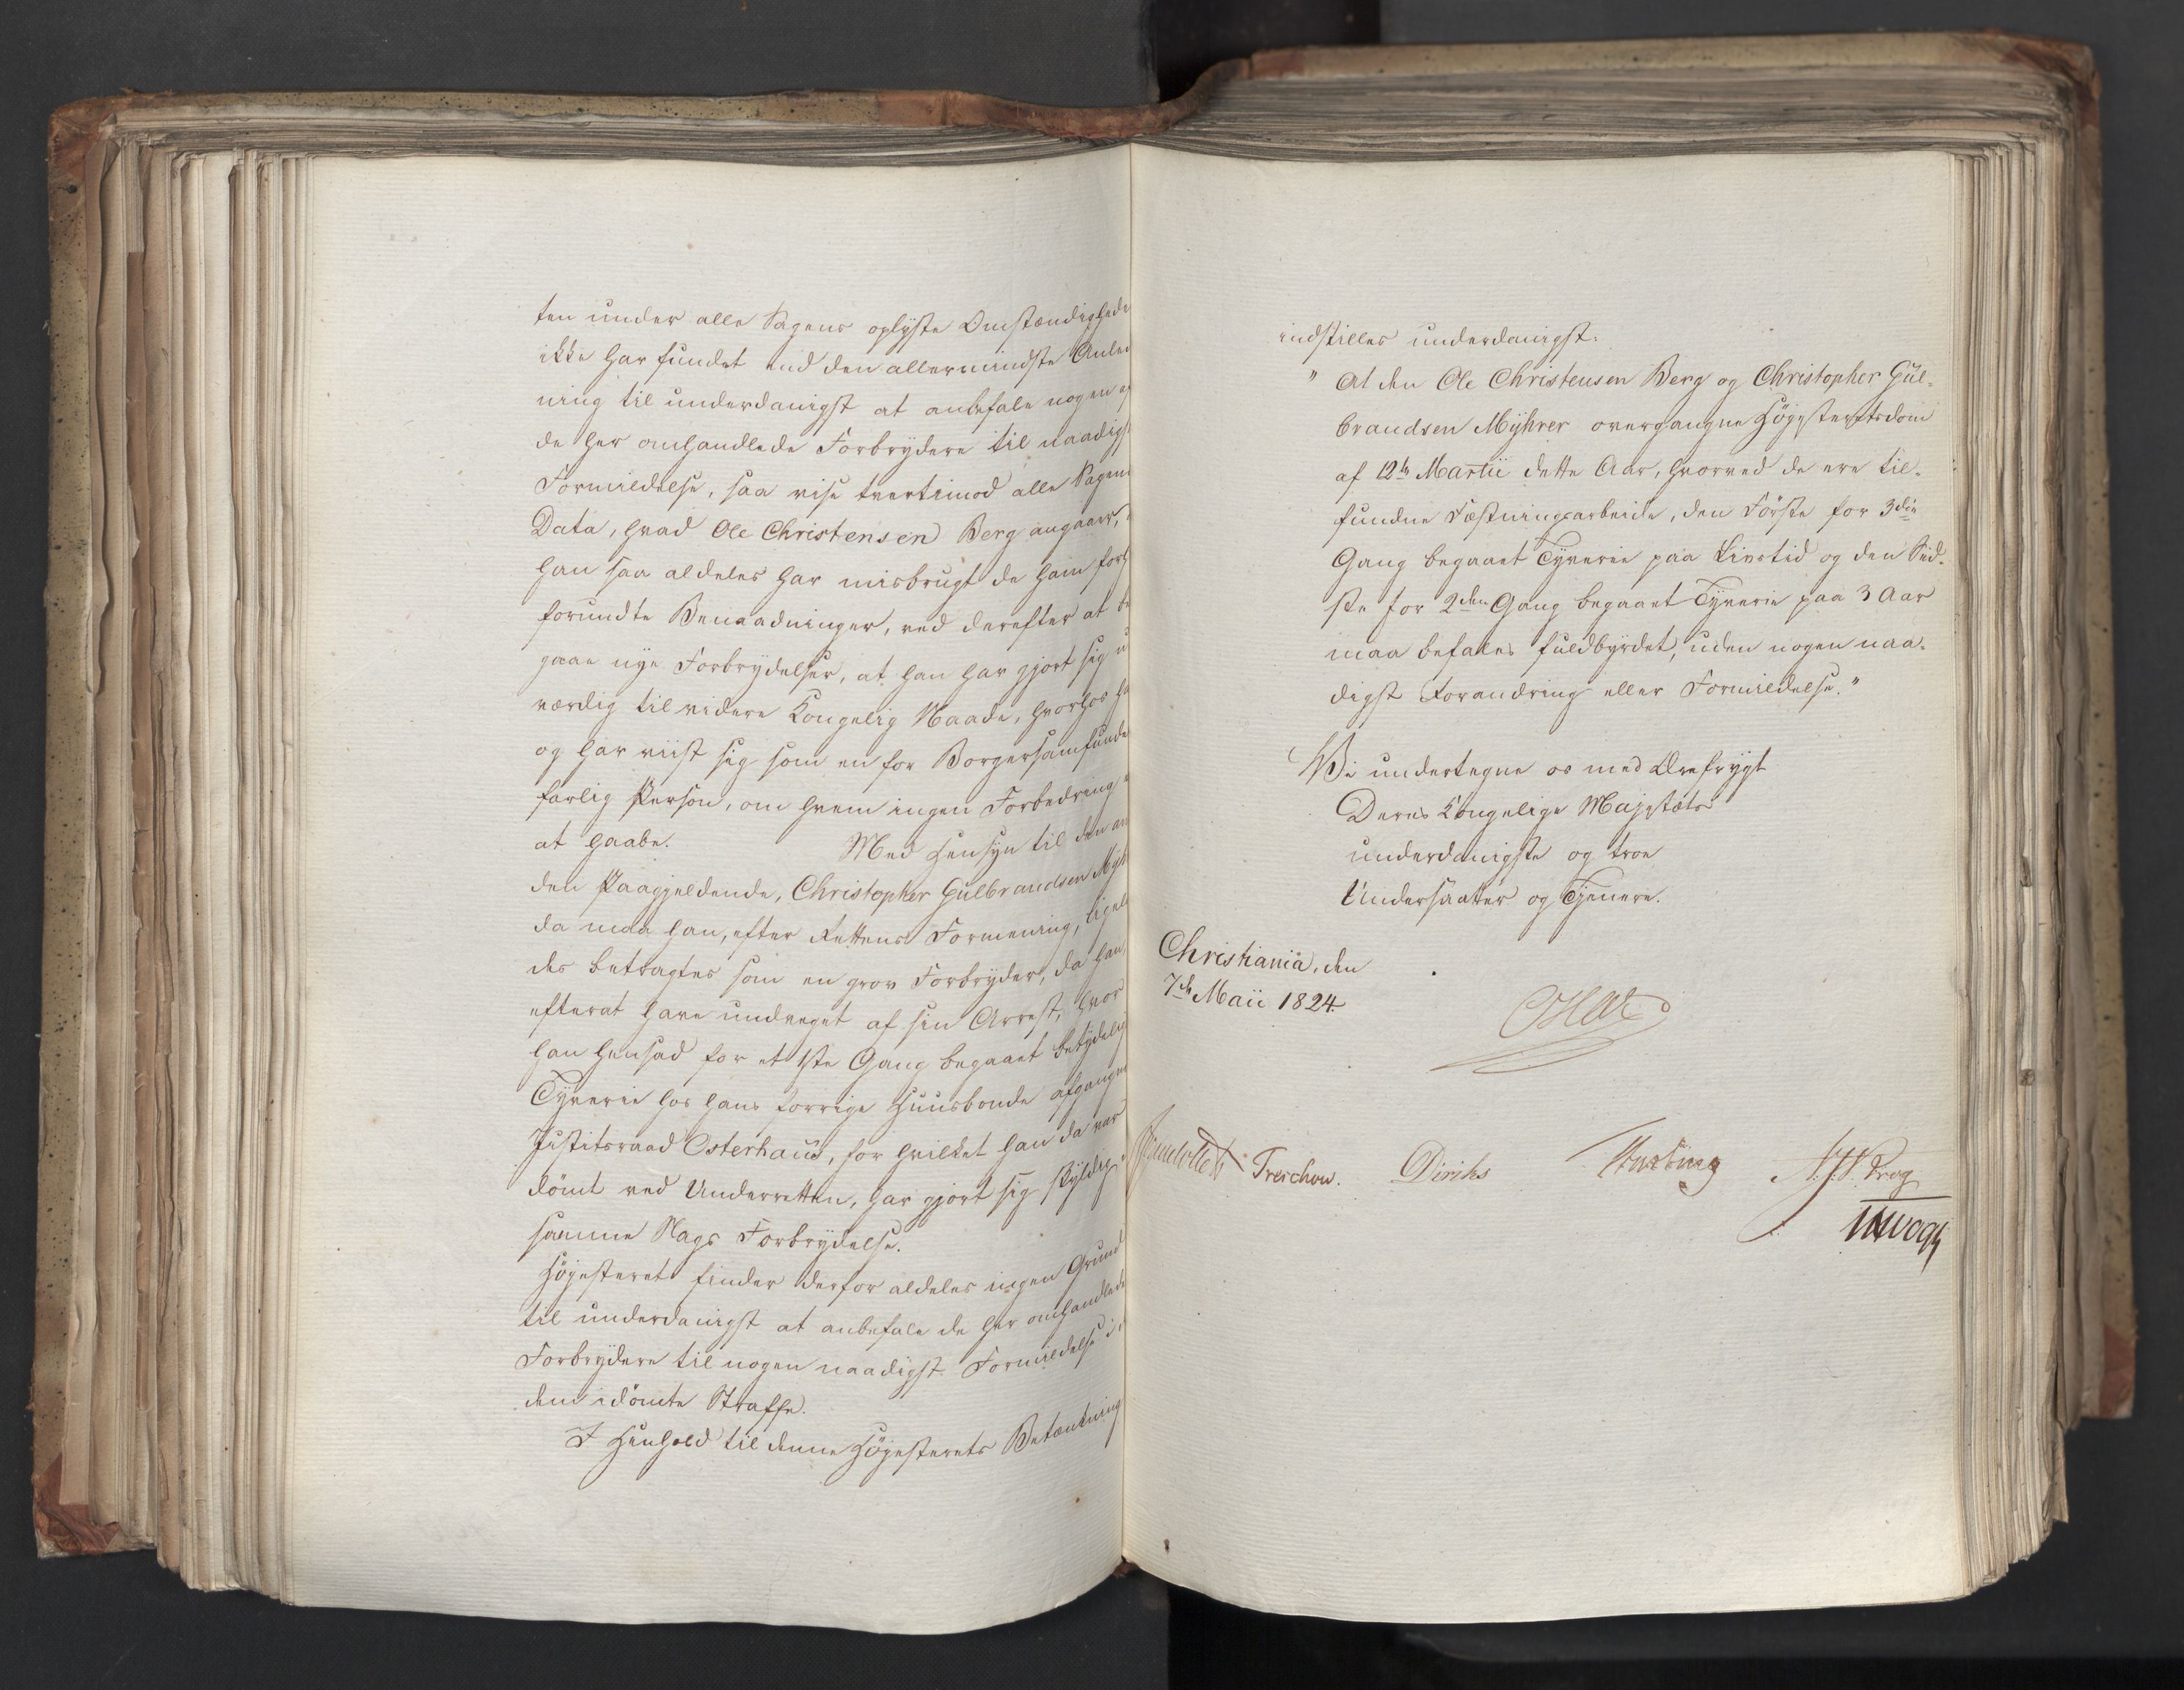 ten under alle Sagens oplyste Omstændighede
ikke har fundet end den allermindste Anled
ning til underdanigst at anbefale nogen af
de her omhandlede Forbrydere til naadigst
Formildelse, saa vise tvertimod alle Sagens
Data, hvad Ole Christensen Berg angaaer,
han saa aldeles har misbrugt de ham forh
forundte Benaadninger, ved derefter at be
gaae nye Forbrydelser, at han har gjort sig u
værdig til videre Kongelig Naade, hvorhos ha
og har viist sig som en for Borgersamfundet
farlig Person, om hvem ingen Forbedring
at haabe. Med Hensyn til den an
den Paagjeldende, Christopher Gulbrandsen Myh
da maa han, efter Rettens Formening, ligele
des betragtes som en grov Forbryder, da han,
efterat have undveget af sin Arrest, hvor
han hensad for et 1ste Gang begaaet betydelig
Tyverie hos hans forrige Huusbonde afgangne
Justitsraad Osterhaus, for hvilket han da var
dömt ved Underretten, har gjort sig skyldig
samme Slags Forbrydelse.
Högesteret finder derfor aldeles ingen Grund
til underdanigst at anbefale de her omhandlede
Forbrydere til nogen naadigst Formildelse i
dem idömte Straffe.
I Henhold til denne Högesterets Betænkning
indstilles underdanigst:
" At den Ole Christensen Berg og Christopher Gul-
brandsen Myhrer overgangne Höyesteretsdom
af 12te Martii dette Aar, hvorved de ere til-
fundne Fæstningsarbeide, den Förste for 3die
Gang begaaet Tyverie paa Livstid og den Sid-
ste for 2den Gang begaaet Tyverie paa 3 Aar
maa befales fuldbyrdet, uden nogen naa-
digst Forandring eller Formildelse."
Vi undertegne os med Ærefrygt
Deres Kongelige Majestæts
underdanigste og troe
Undersaatter og Tjenere.
Christiania, den
7de Maii 1824.
Treschow. Diriks N. J. W. Krog
Vogt